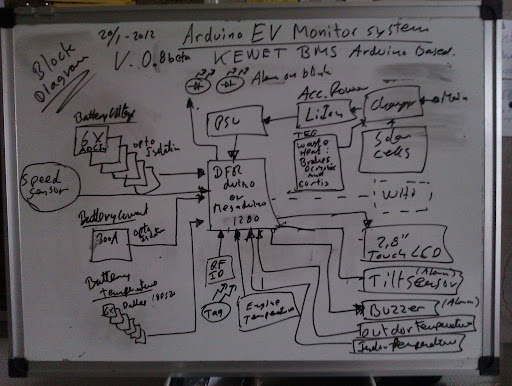 20/1-2012 Arduino EV Monitor system
V. 0.8beta KEWET BMS Arduino Based.
Block
Diagram
Alarm on blink
Acc. Power
Battery Voltage
6 X
opto
Isolation
PSU
LiIon
Charger
Main
TEG
Waste
Heat:
Brakes
and
Curtis
Solar
cells
Speed
Sensor
DFR
duino
or
Megaduino
1280
Battery Current
300A
opto
2,8"
Touch LCD
Battery
temperature
Dallas 18B20
RF
ID
Tag
Engine
Temperature
Tilt (Alarm)
sensor
Buzzer (Alarm)
Outdor temperature
Indor temperature